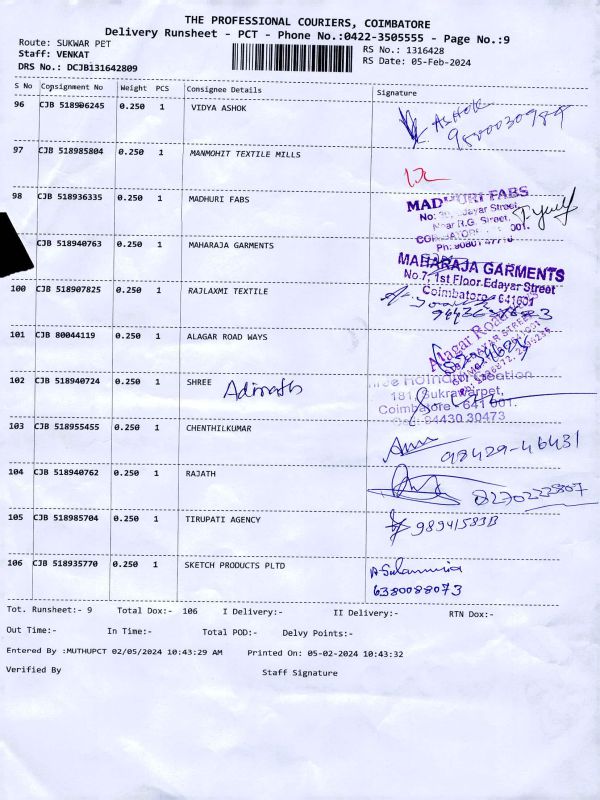 THE PROFESSIONAL COURIERS, COIMBATORE
Delivery Runsheet - PCT - Phone No.:0422-3505555 - Page No.:9
Route: SUKWAR PET
RS No.: 1316428
Staff: VENKAT
RS Date: 05-Feb-2024
DRS No.: DCJB131642809
S No Consignment No Weight PCS Consignee Details Signature
96 CJB 518906245 0.250 1 VIDYA ASHOK
ASHOK
97 CJB 518985804 0.250 1 MANMOHIT TEXTILE MILLS
98 CJB 518936335 0.250 1 MADHURI FABS
MADHURI FABS
Edayar Street,
Near R.G. Street,
CJB 518940763 0.250 1 MAHARAJA GARMENTS
MAHARAJA GARMENTS
No.7, 1st Floor, Edayar Street
Coimbatore - 641001
100 CJB 518907825 0.250 1 RAJLAXMI TEXTILE
101 CJB 80044119 0.250 1 ALAGAR ROAD WAYS
Alagar Road
102 CJB 518940724 0.250 1 SHREE Adinath
181, Sukrawarpet,
Coimbatore - 641 001.
94430 30473
103 CJB 518955455 0.250 1 CHENTHILKUMAR
98429-46431
104 CJB 518940762 0.250 1 RAJATH
8270222807
105 CJB 518985704 0.250 1 TIRUPATI AGENCY
106 CJB 518935770 0.250 1 SKETCH PRODUCTS PLTD
6380088073
Tot. Runsheet:- 9 Total Dox:- 106 I Delivery:- II Delivery:- RTN Dox:-
Out Time:- In Time:- Total POD:- Delvy Points:-
Entered By :MUTHUPCT 02/05/2024 10:43:29 AM Printed On: 05-02-2024 10:43:32
Verified By Staff Signature